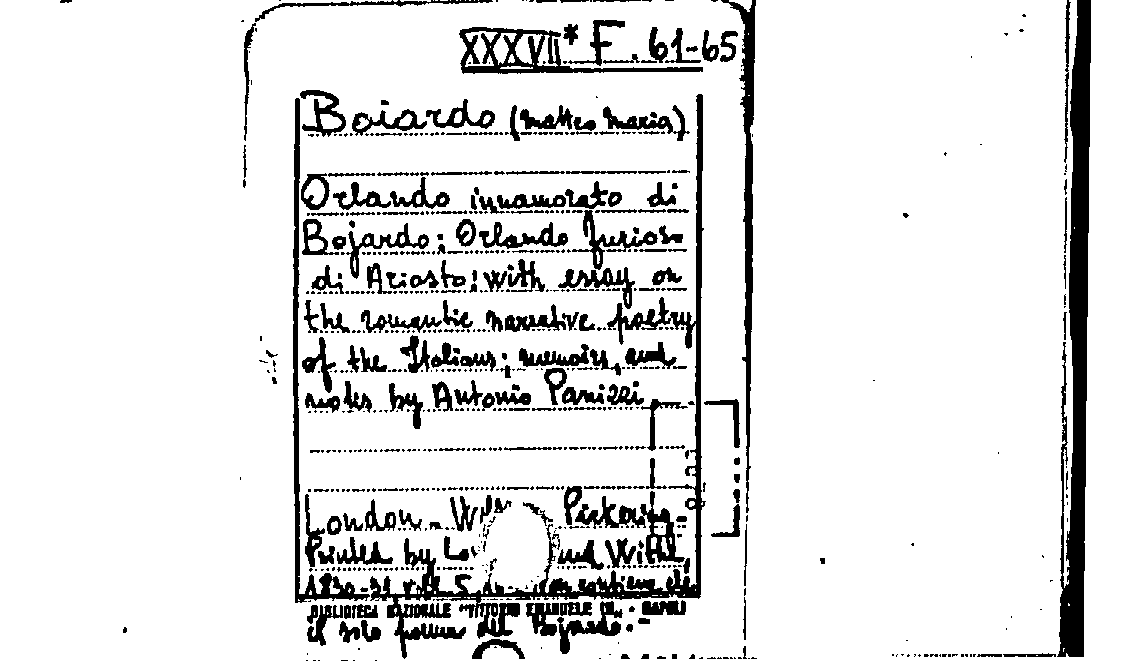 XXXVII* F. 61-65
Boiardo (Matteo Maria)
Orlando innamorato di
Bojardo: Orlando furioso
di Ariosto: with essay on
the romantic narrative poetry
of the Italians; memoirs, and
notes by Antonio Panizzi
London - Pickering -
Printed by and
1830-31 voll. 5,
BIBLIOTECA NAZIONALE "VITTORIO EMANUELE III" - NAPOLI
il solo poema del Bojardo. -